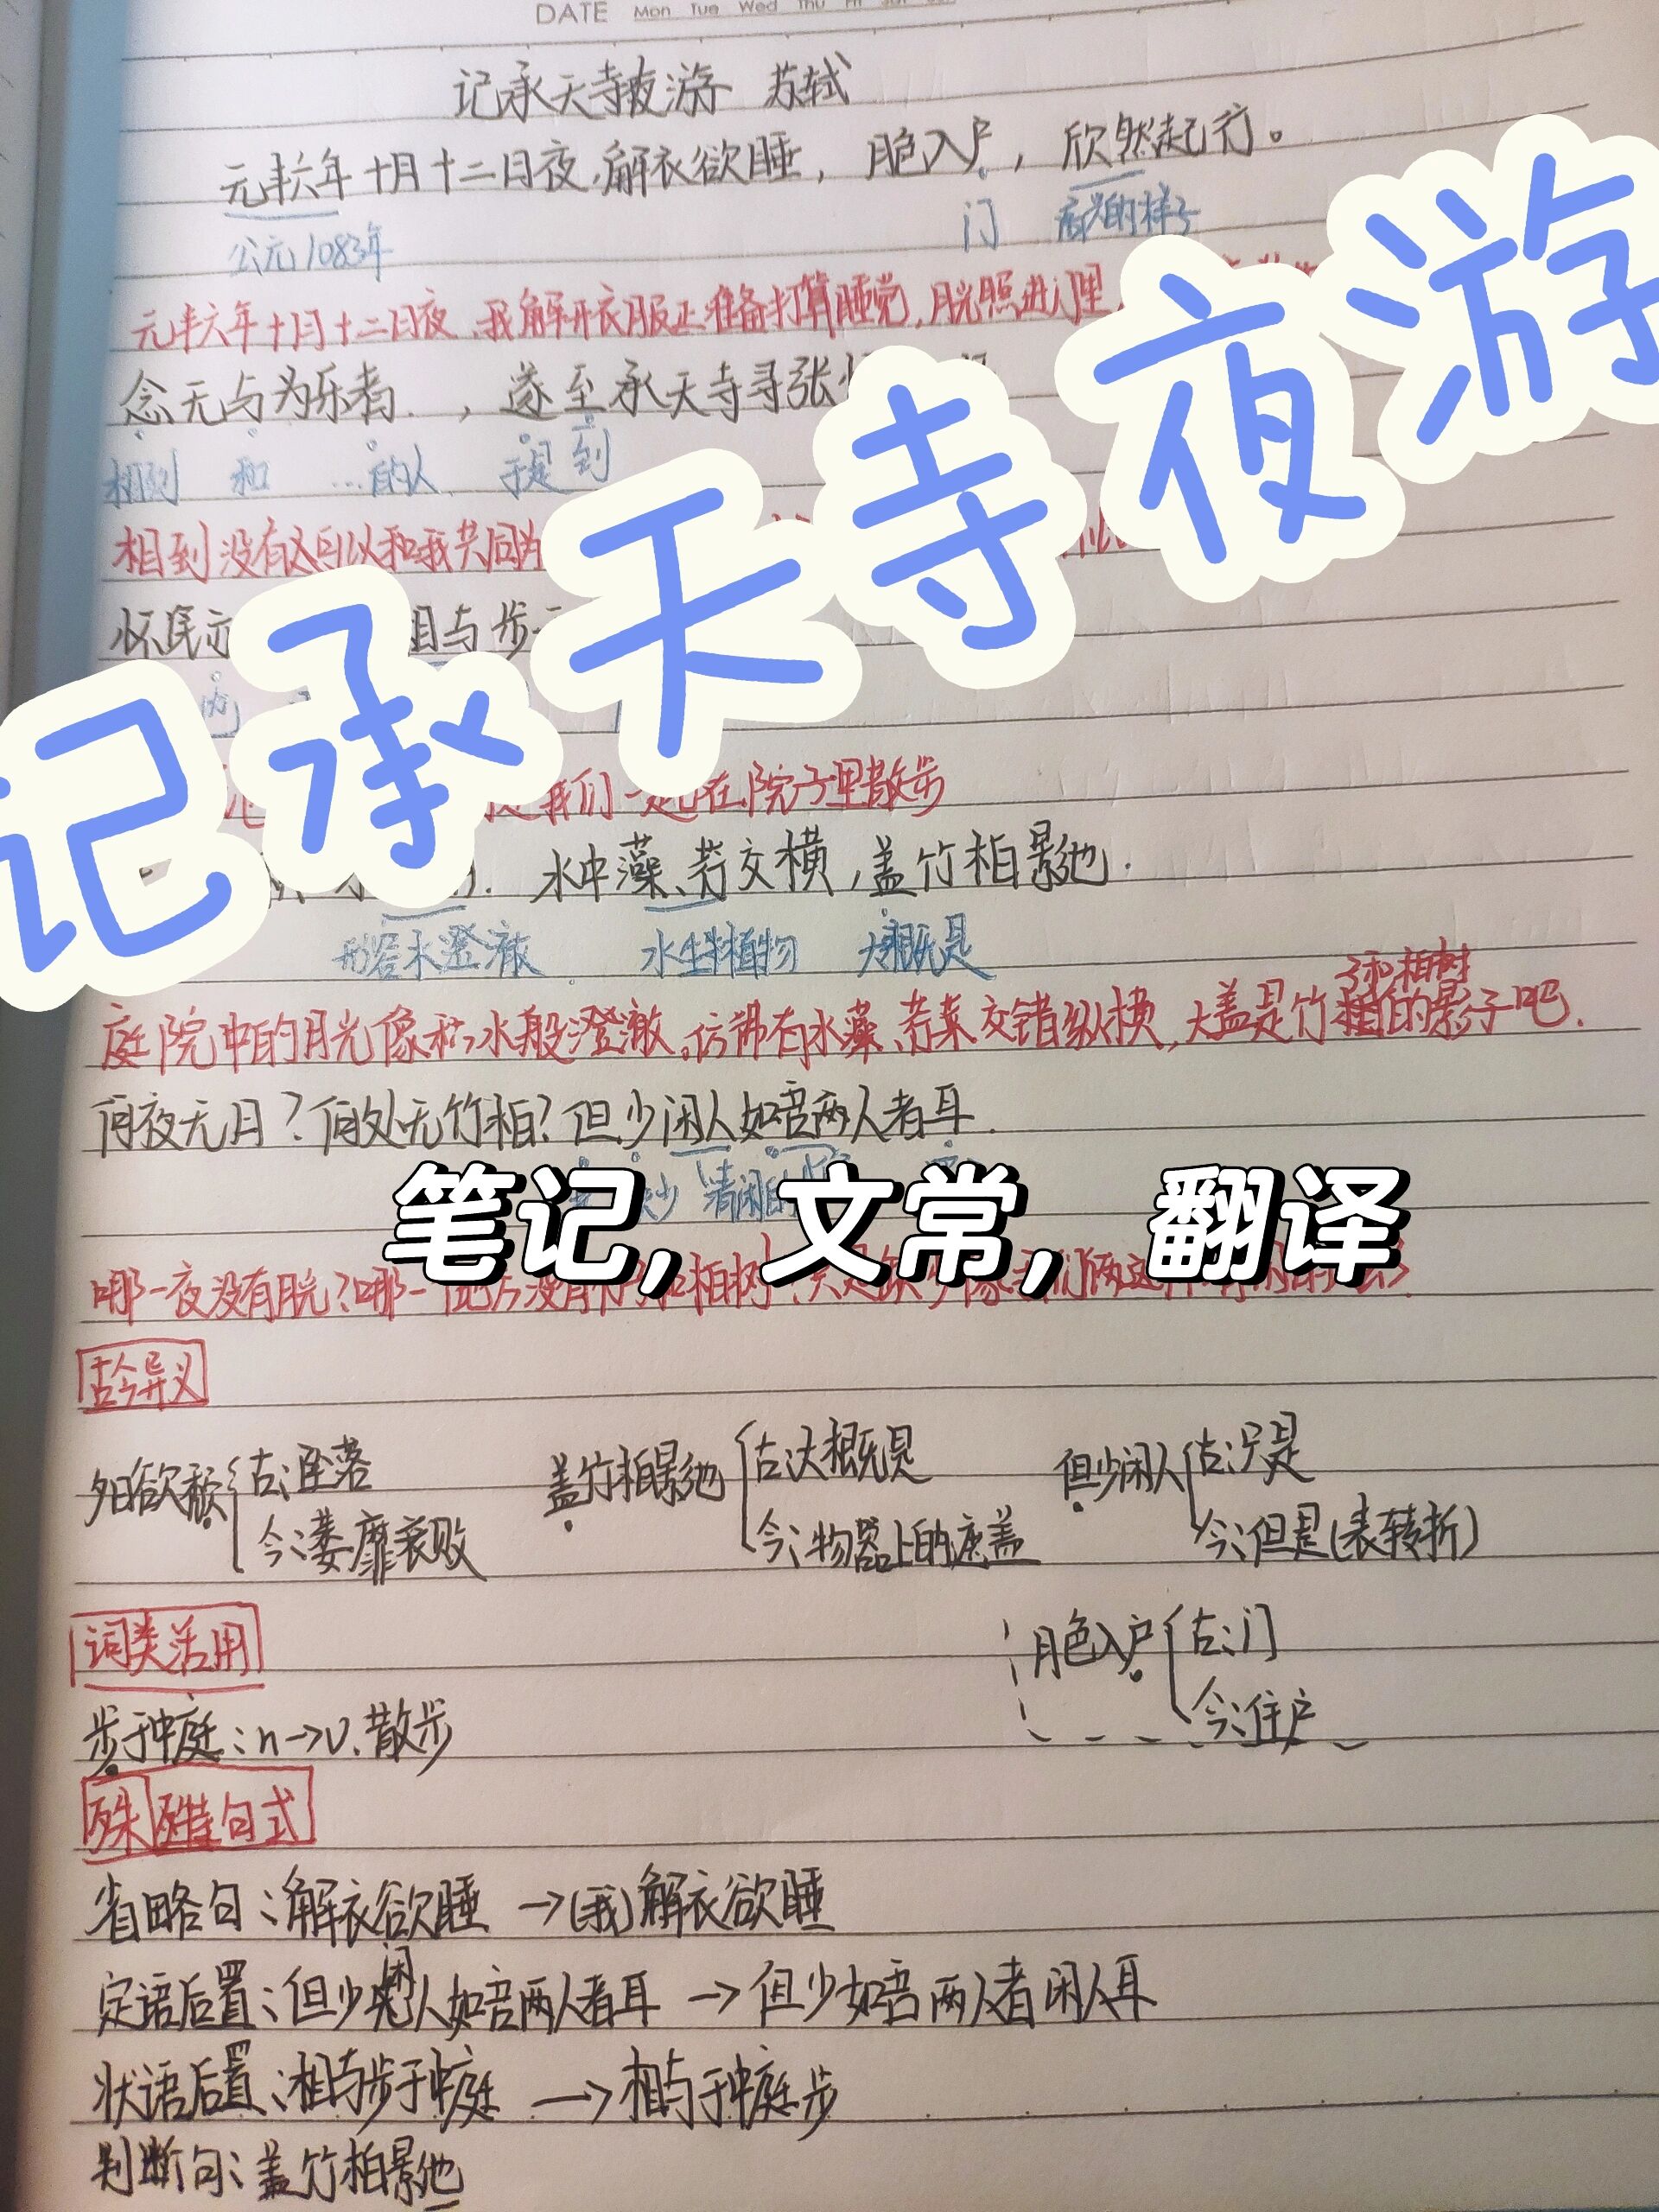 DATE Mon Tue Wed Thu Fri
记承天寺夜游 苏轼
元丰六年十月十二日夜,解衣欲睡,月色入户,欣然起行。
公元1083年 门 高兴的样子
元丰六年十月十二日夜,我解开衣服正准备打算睡觉,月光照进门里,
念无与为乐者,遂至承天寺寻张
相到 和 …的人 于是 到
相到没有人可以和我共同为
怀民亦 相与步于
记承天寺夜游
我们一起在院子里散步
水中藻、荇交横,盖竹柏影也.
形容水澄澈 水生植物 大概是
子和柏树
庭院中的月光像积水般澄澈。仿佛有水藻、荇菜交错纵横,大盖是竹的影子吧.
何夜无月?何处无竹柏?但少闲人如吾两人者耳.
少 清闲的
笔记,文常,翻译
哪一夜没有月光?哪一
古今异义
夕日欲颓 古:坠落 盖竹柏影也 古:大概是 但少闲人 古:只是
今:萎靡衰败 今:物器上的遮盖 今:但是(表转折)
词类活用 月色入户 古:门
今:住户
步于中庭:n→v.散步
殊句式
省略句:解衣欲睡→(我)解衣欲睡
定语后置:但少闲人如吾两人者耳→但少如吾两人者闲人耳
状语后置:相与步于中庭→相与于中庭步
判断句:盖竹柏影也